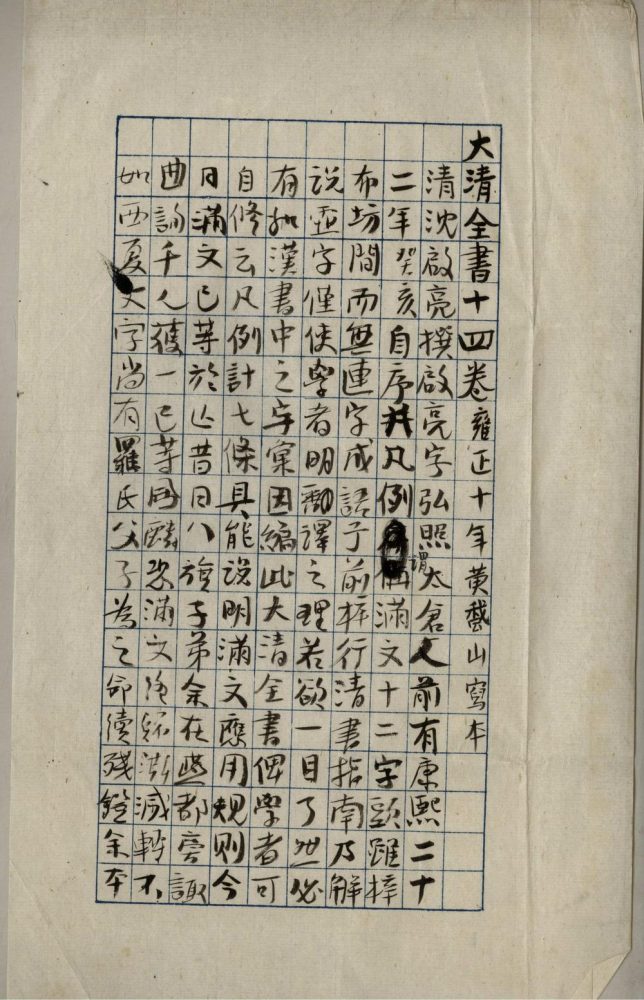 大清全書十四卷雍正十年黄山寫本
清沈啟亮撰啟亮字弘照太倉人前有康熙二十
二年癸亥自序并凡例謂滿文十二字頭雖梓
布坊間而無連字成語予前梓行清書指南乃解
說虛字僅使學者明翻譯之理若欲一目了然必
有如漢書中之字彙因編此大清全書俾學者可
自修云凡例計七條具能說明滿文應用規則今
日滿文已等於亡昔日八旗子弟余在都旁諏
曲詢千人獲一已等麟滿文漸滅轉不
如西夏文字尚有羅氏父子為之命續殘鐙余本